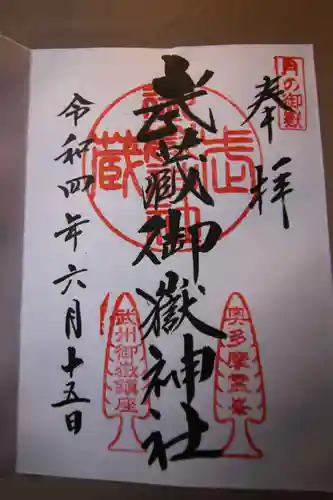 月の御嶽
奉拝
武蔵御嶽神社
令和四年六月十五日
奥多摩霊峯
武州御嶽鎮座